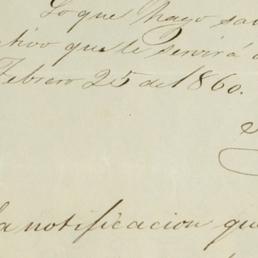 Lo que hago sa
tivo que le servirá d
Febrero 25 de 1860.
la notificacion qu